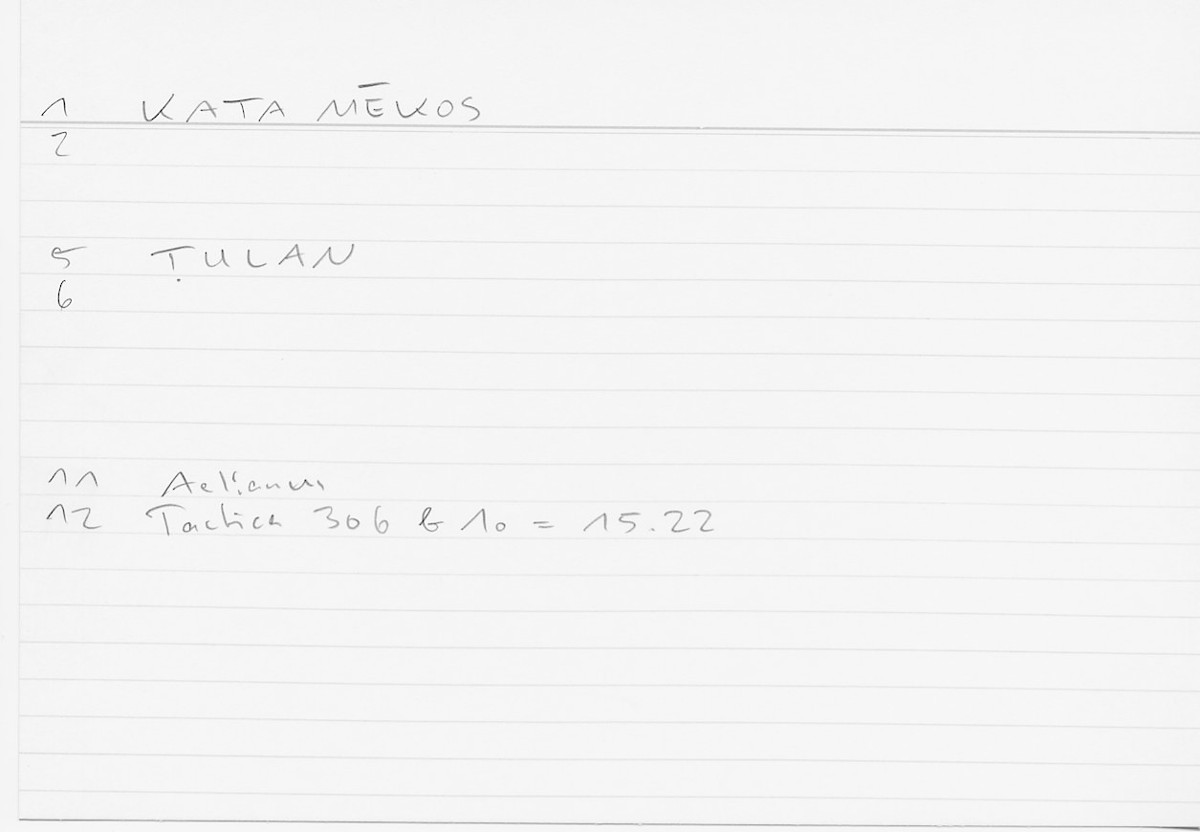 1 KATA MĒKOS
2
5 ṬULAN
6
11 Aelianus
12 Tactica 306 b 10 = 15.22